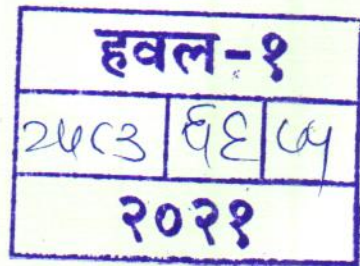 हवल-१
२५८३ ६६ ७५
२०२१